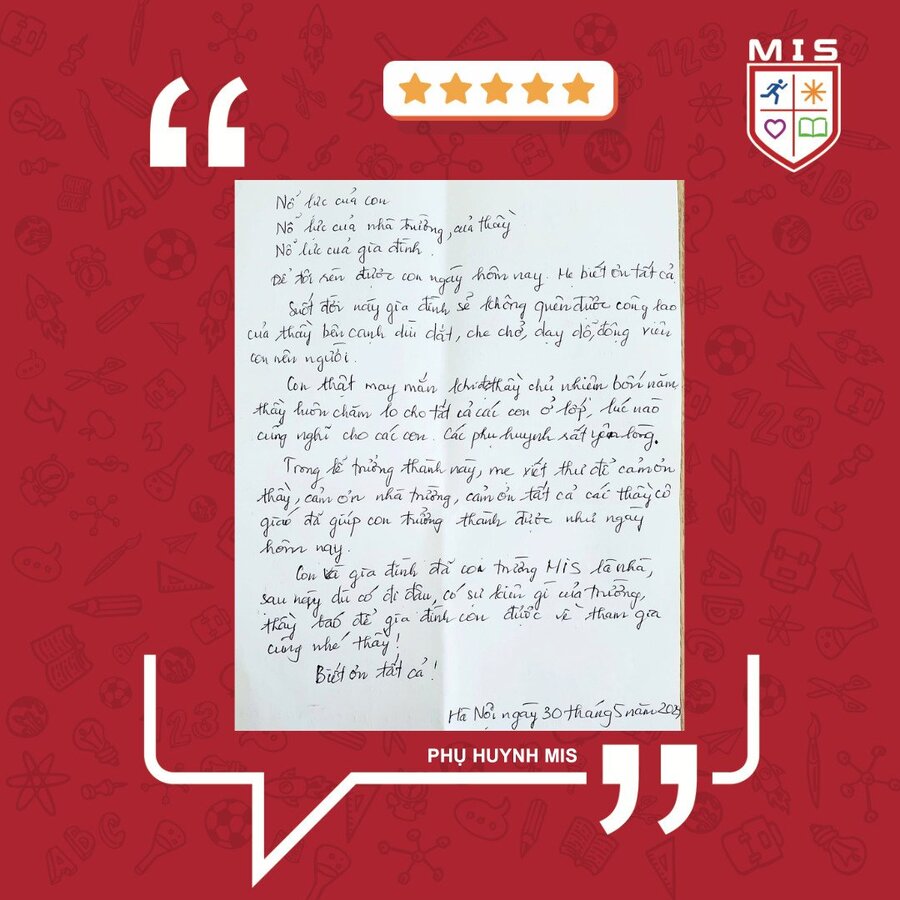 MIS
Nỗ lực của con
Nỗ lực của nhà trường, của thầy
Nỗ lực của gia đình.
Để tôi rèn được con ngày hôm nay. Mẹ biết ơn tất cả
Suốt đời này gia đình sẽ không quên được công lao
của thầy bên cạnh dìu dắt, che chở, dạy dỗ, động viên
con nên người.
Con thật may mắn khi thầy chủ nhiệm bốn năm,
thầy luôn chăm lo cho tất cả các con ở lớp, lúc nào
cũng nghĩ cho các con. Các phụ huynh rất yên lòng.
Trong lễ trưởng thành này, mẹ viết thư để cảm ơn
thầy, cảm ơn nhà trường, cảm ơn tất cả các thầy cô
giáo đã giúp con trưởng thành được như ngày
hôm nay.
Con và gia đình đã coi trường MIS là nhà,
sau này dù có đi đâu, có sự kiện gì của trường,
thầy báo để gia đình con được về tham gia
cùng nhé thầy!
Biết ơn tất cả!
Hà Nội, ngày 30 tháng 5 năm
PHỤ HUYNH MIS